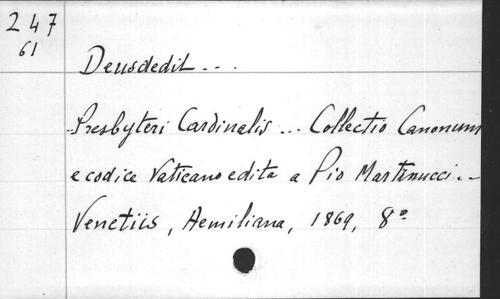 247
61
Deusdedit ...
Presbyteri Cardinalis ... Collectio Canonum
e codice Vaticano edita a Pio Martinucci ..
Venetiis, Aemiliana, 1869, 8º